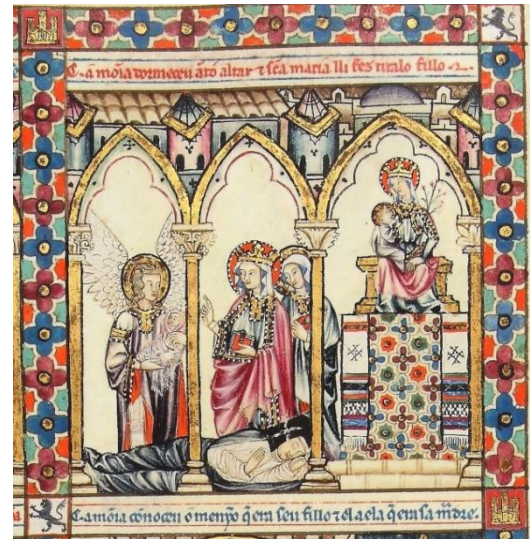 C. a mõia dormeceu ãto altar ⁊ sc̃a maria lli fez tiralo fillo
C. a mõia conoceu o menỹo q̃ era seu fillo ⁊ el a ela q̃ era sa m̃dre.